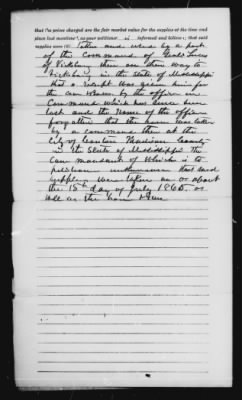 that the price charged are the fair market value for the supplies at the time and
place last mentioned, as your petitioner is informed and believes; that said
supplies were
taken and used by a part
of the Command of
of Vicksburg then on their way to
Vicksburg in the State of Mississippi
that a receipt was given him for
the corn taken by the officer in
Command which has since been
lost and the Name of the officer
forgotten that the horse was taken
by a command then at the
City of Canton Madison County
in the State of Mississippi the
commandant of Which is to
petitioner unknown that said
supplies were taken on or about
the 18th day of July 1863. as
well as the horse